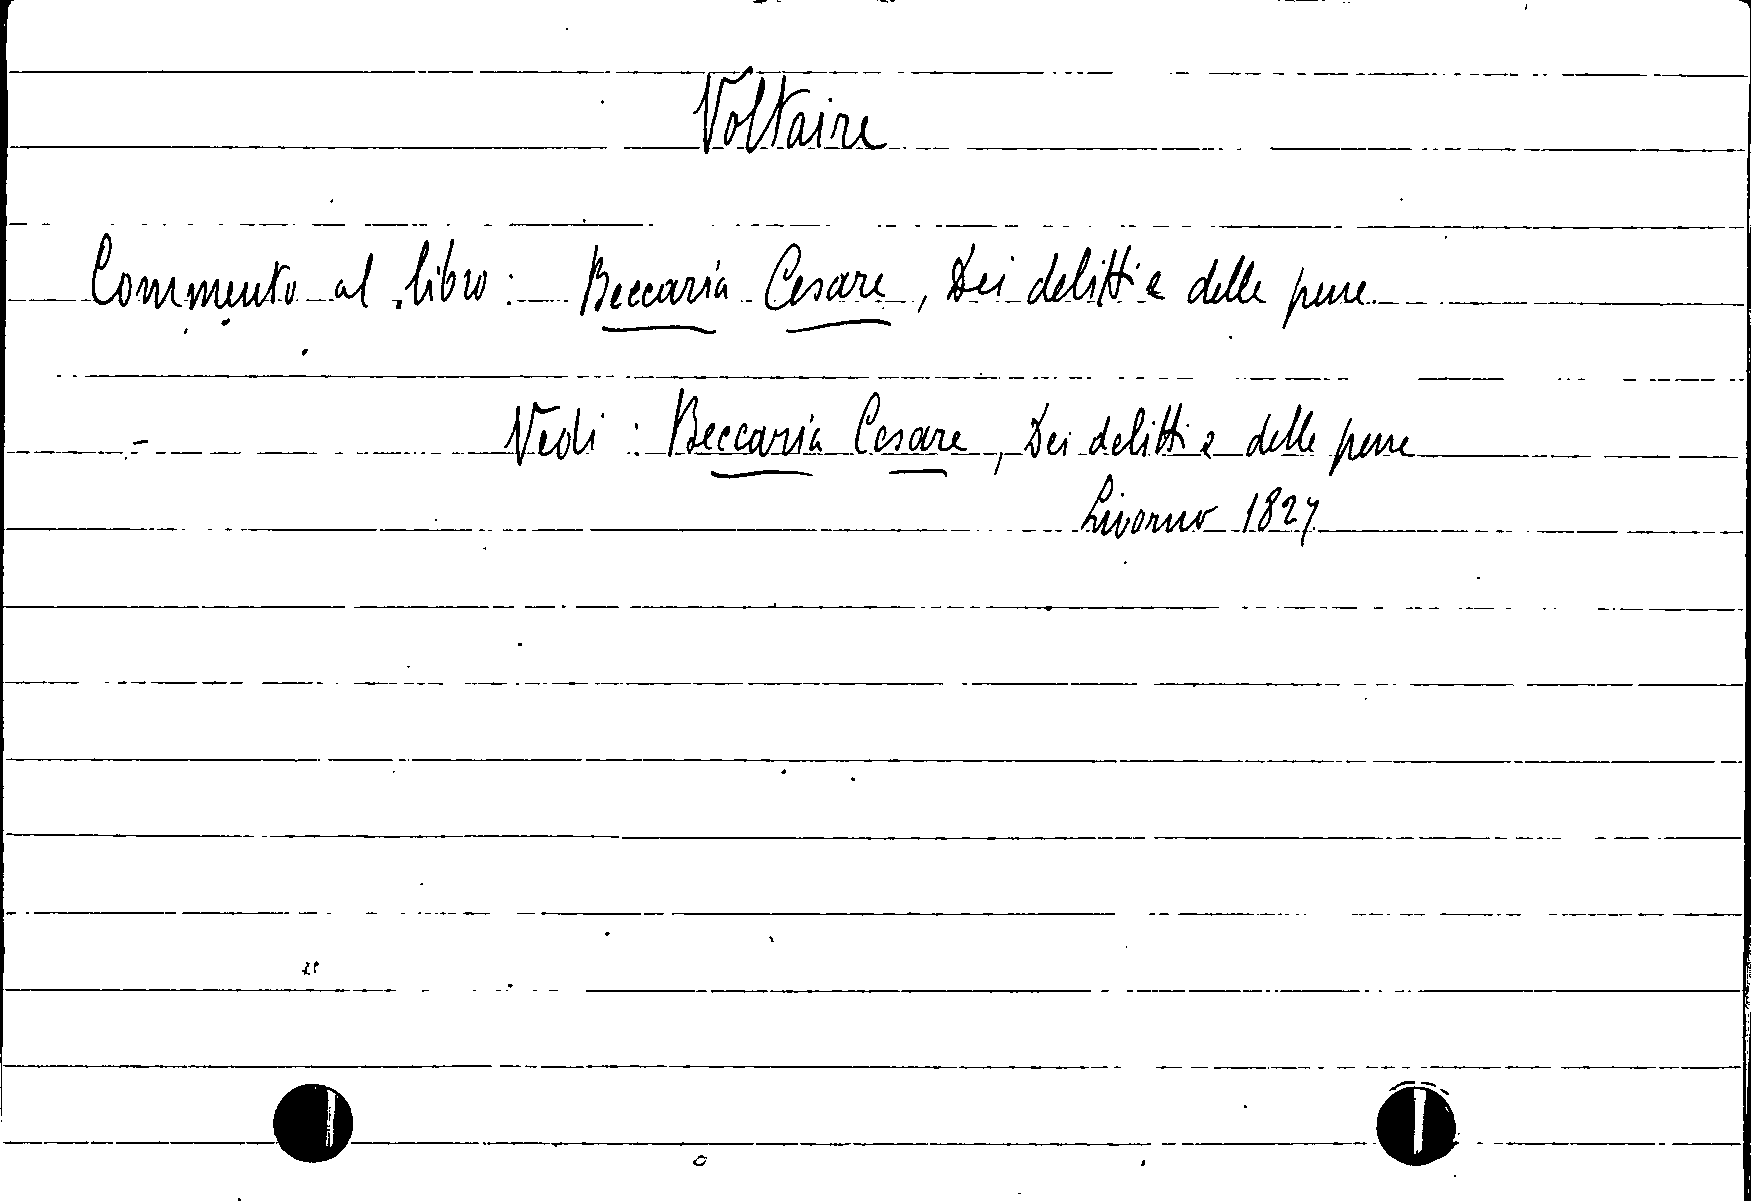 Voltaire
Commento al libro: Beccaria Cesare, Dei delitti e delle pene
Vedi: Beccaria Cesare, Dei delitti e delle pene
Livorno 1827